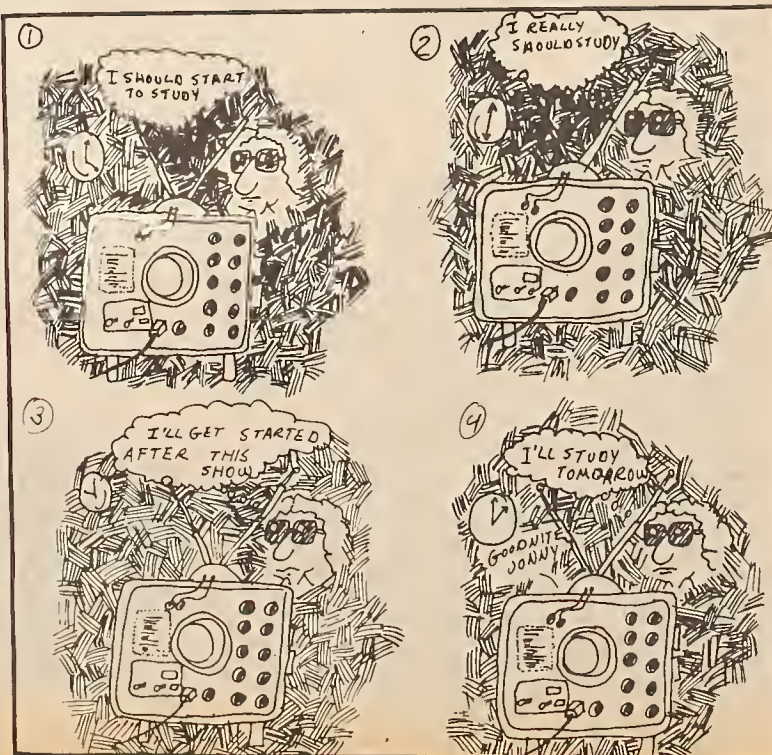 1
I SHOULD START
TO STUDY
2
I REALLY
SHOULD STUDY
3
I'LL GET STARTED
AFTER THIS
SHOW
4
I'LL STUDY
TOMORROW
GOODNITE
JONNY